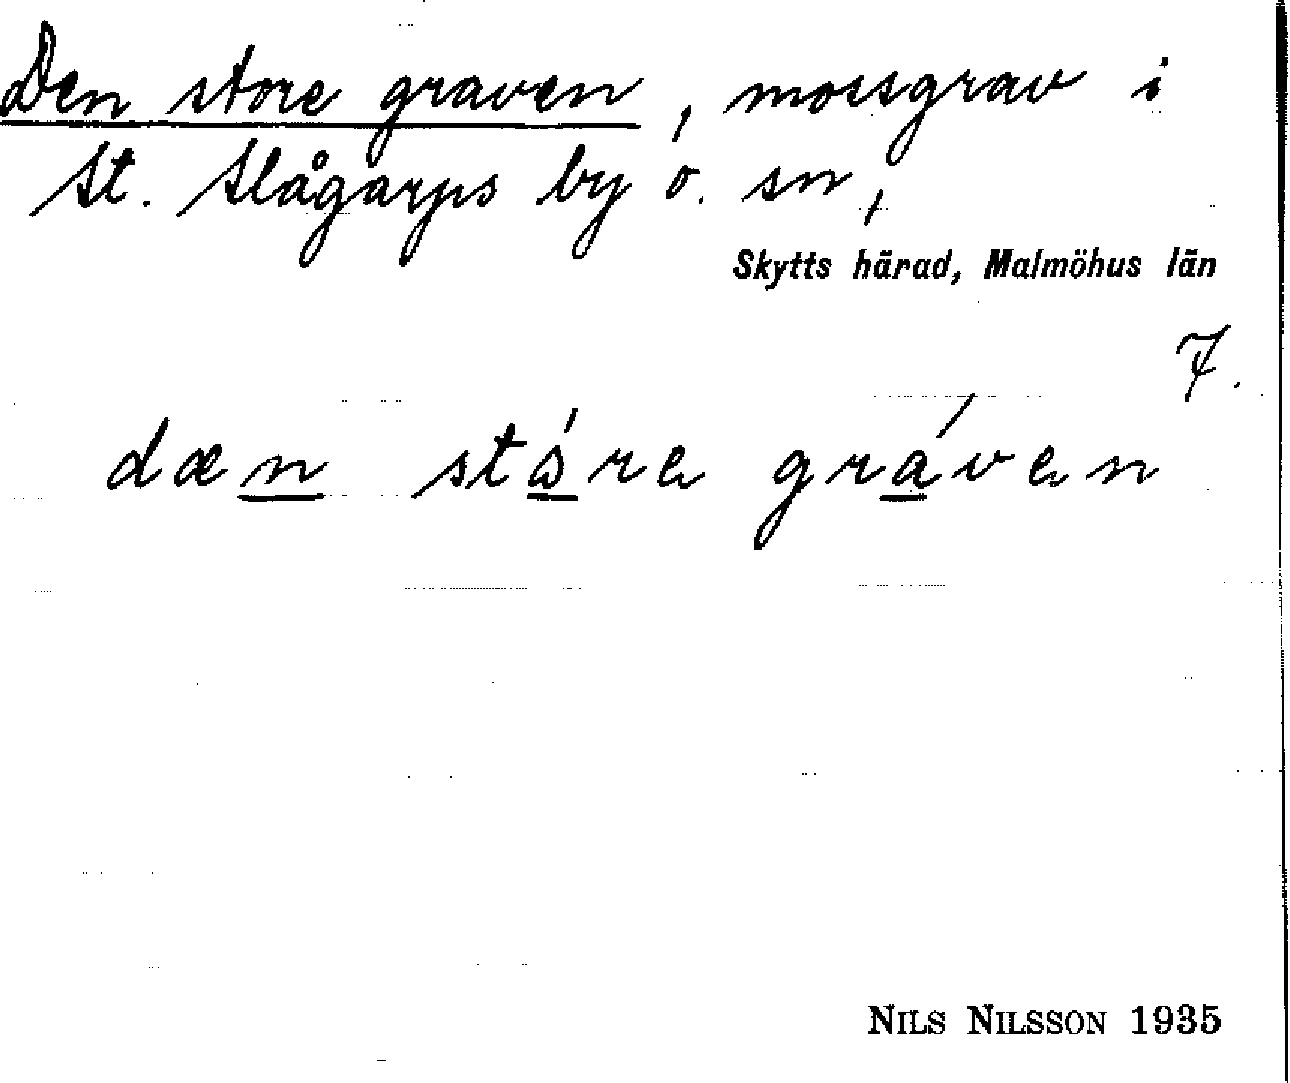 Den store graven, mossgrav i
St. Slågarps by o. sn,
Skytts härad, Malmöhus län
7.
dæn stóre gráven
NILS NILSSON 1935